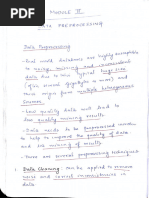 MODULE II
DATA PREPROCESSING
Data Preprocessing
- Real world databases are highly susceptible
to noisy, missing and inconsistent
data due to their typical huge size
(often several gigabytes or more) and
their origin from multiple heterogeneous
sources.
- Low quality data will lead to
low quality mining results.
- Data needs to be preprocessed
quality mining results.
- There are several preprocessing techniques
Data Cleaning: can be applied to remove
noise and correct inconsistencies in
data